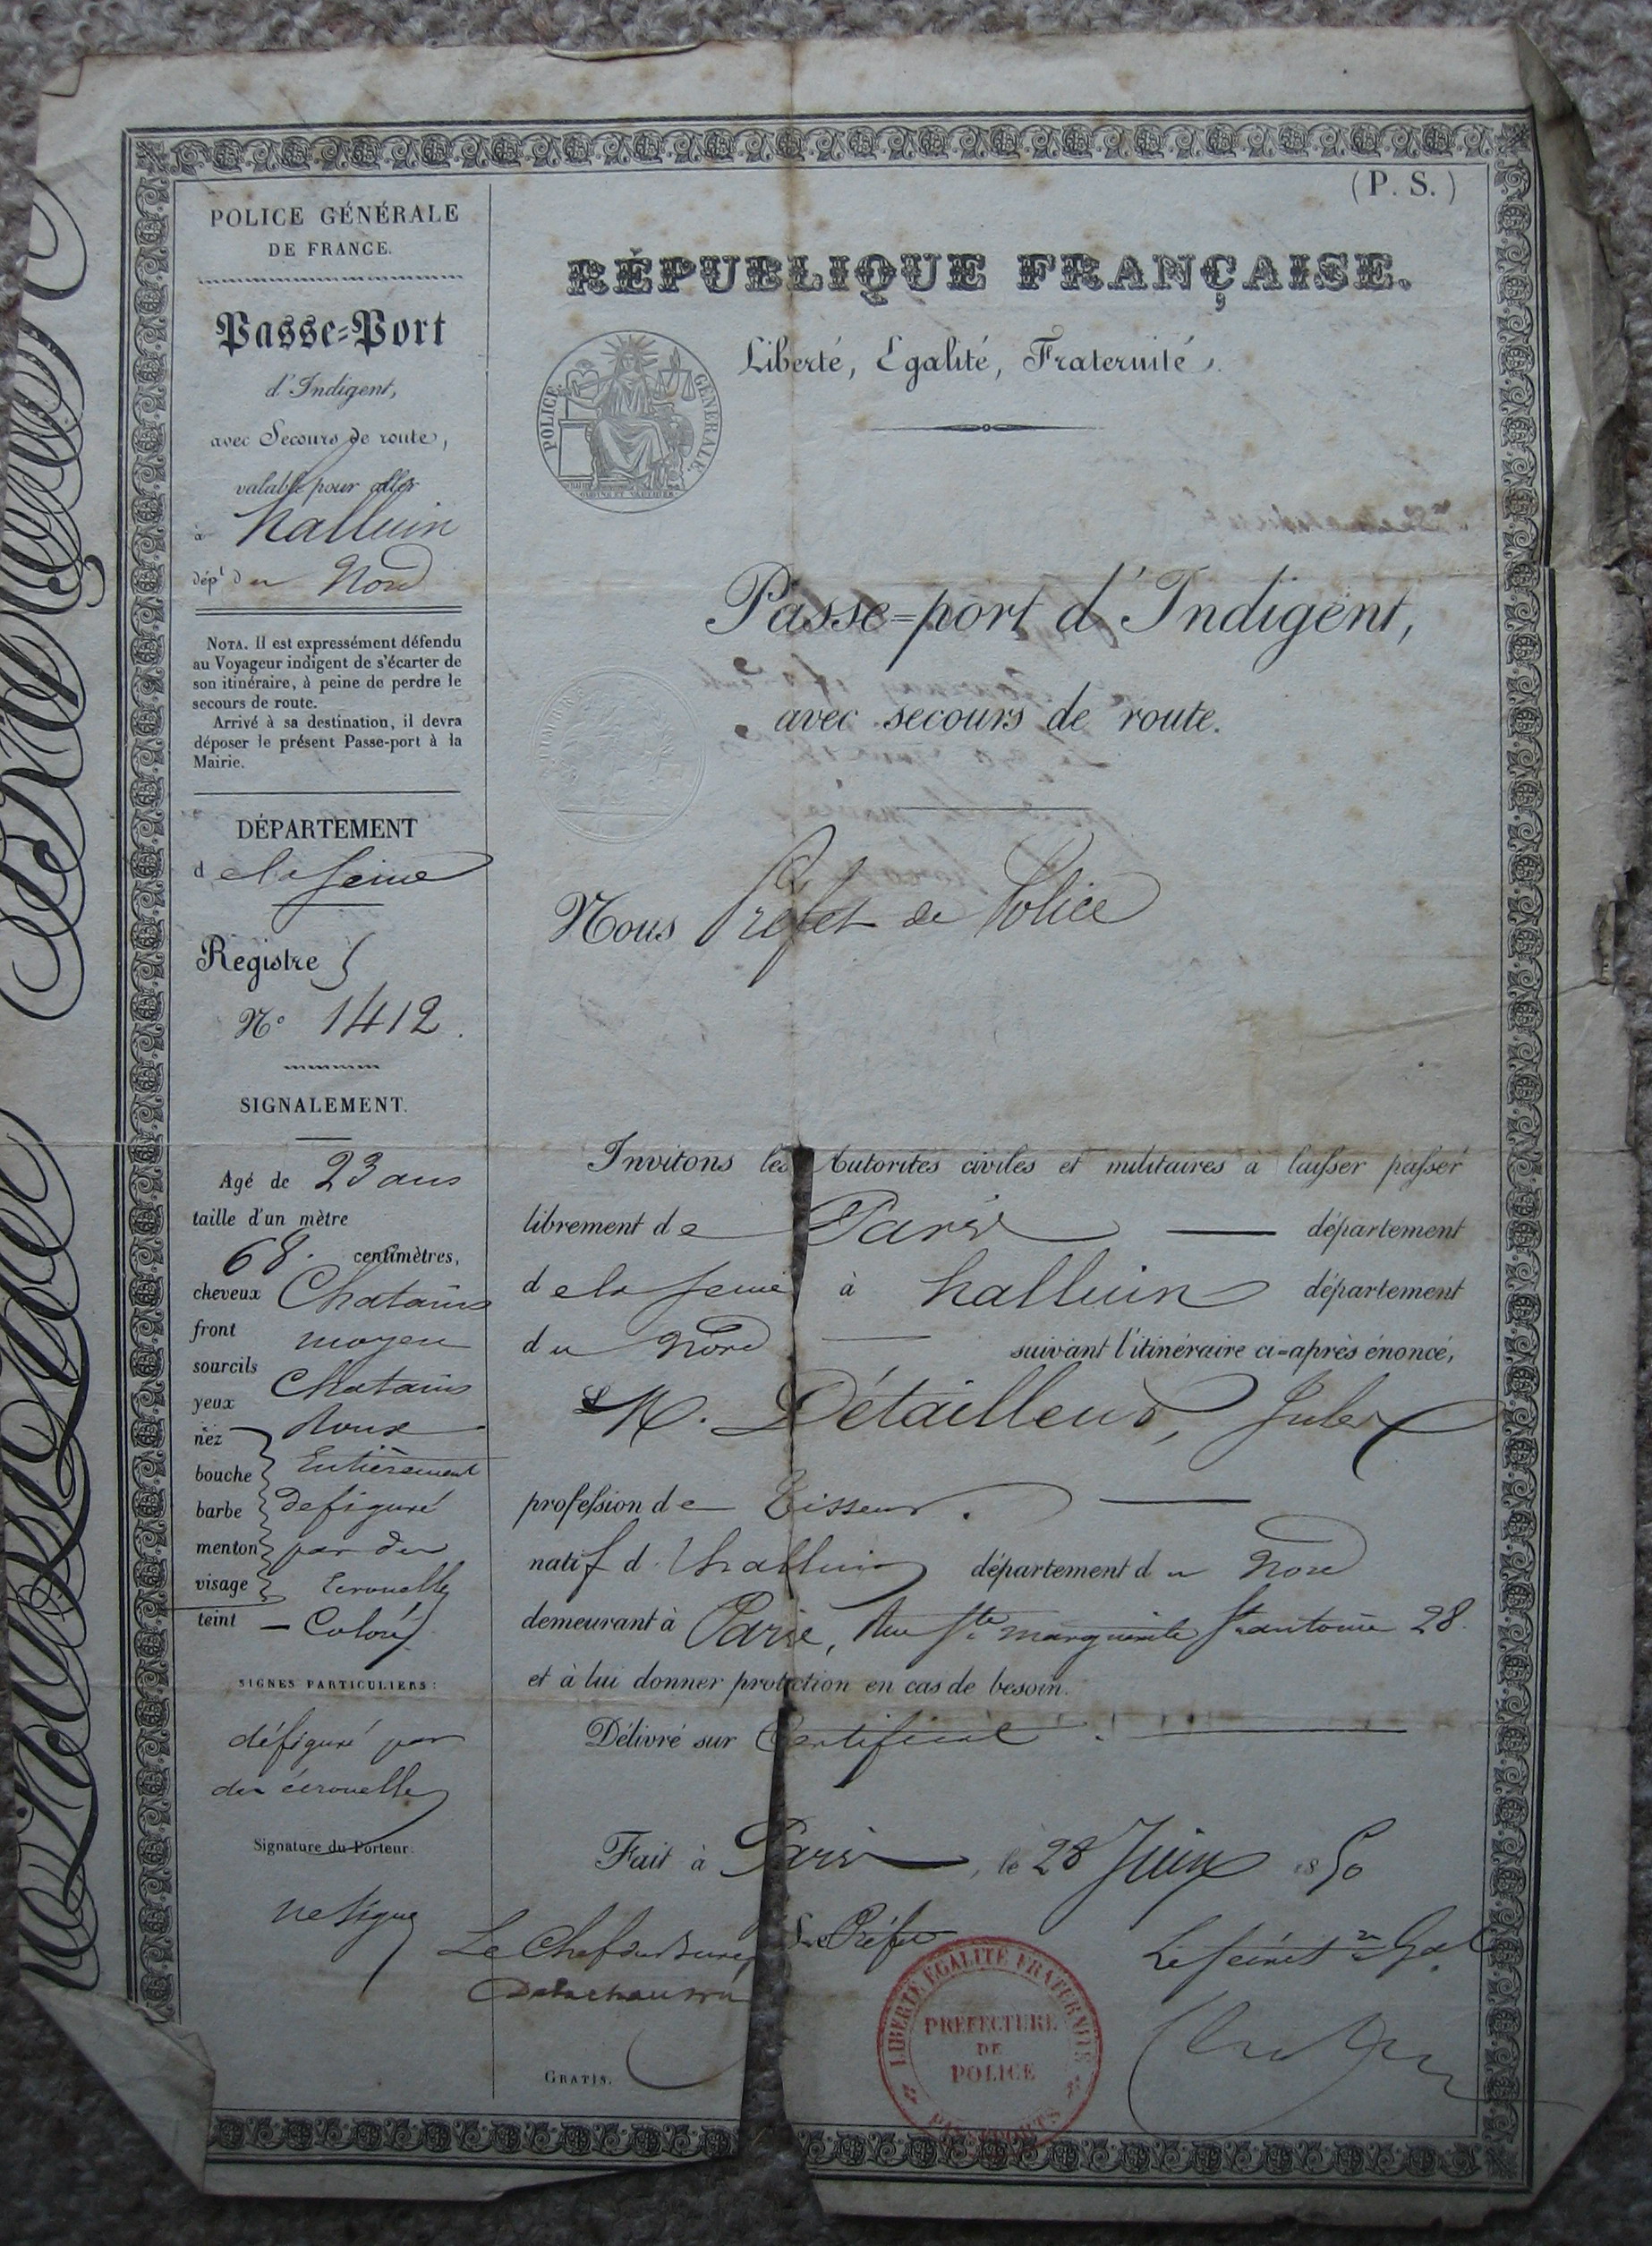 (P. S.)
POLICE GÉNÉRALE
DE FRANCE.
Passe-Port
d'Indigent,
avec Secours de route,
valable pour aller
à halluin
dépt du Nord
NOTA. Il est expressément défendu
au Voyageur indigent de s'écarter de
son itinéraire, à peine de perdre le
secours de route.
Arrivé à sa destination, il devra
déposer le présent Passe-port à la
Mairie.
DÉPARTEMENT
de la Seine
Registre
No 1412.
SIGNALEMENT.
Agé de 23 ans
taille d'un mètre
68. centimètres,
cheveux Chatains
front moyen
sourcils Chatains
yeux Roux
nez Entièrement
bouche
barbe defiguré
menton par des
visage Ecrouelles
teint Coloré
SIGNES PARTICULIERS:
défiguré par
des écrouelles
Signature du Porteur:
ne signe
RÉPUBLIQUE FRANÇAISE.
Liberté, Egalité, Fraternité.
POLICE GÉNÉRALE.
Passe-port d'Indigent,
avec secours de route.
Nous Préfet de Police
Invitons les Autorités civiles et militaires à laisser passer
librement de Paris département
de la Seine à halluin département
du Nord suivant l'itinéraire ci-après énoncé,
M. Détailleur, Jules
profession de Tisseur.
natif d'halluin département du Nord
demeurant à Paris, Rue Ste marguerite St antoine 28.
et à lui donner protection en cas de besoin.
Délivré sur Certificat.
Fait à Paris, le 28 Juin 1850
Le Chef du Bureau
Le Préfet
Le Secrét. Gal
LIBERTÉ EGALITÉ FRATERNITÉ
PREFECTURE
DE
POLICE
PASSEPORTS
GRATIS.